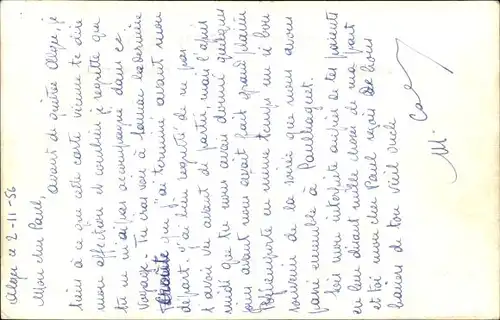 Alger le 2-11-56
Mon cher Paul,
avant de quitter Alger, je
tiens à ce que cette carte vienne te dire
mon affection et combien je regrette que
tu ne m'aies pas accompagné dans ce
voyage. Tu iras voir à la dernière
que j'ai terminé avant mon
départ. J'ai bien regretté de ne pas
t'avoir vu avant de partir mais l'après
midi que tu nous avais donné quelques
jours avant nous avait fait grand plaisir
J'emporte en même temps un si bon
souvenir de la soirée que nous avons
passé ensemble à Paulhaguet.
Sois mon interprète auprès de tes parents
en leur disant mille choses de ma part
et toi mon cher Paul reçois de bons
baisers de ton vieil oncle
M.